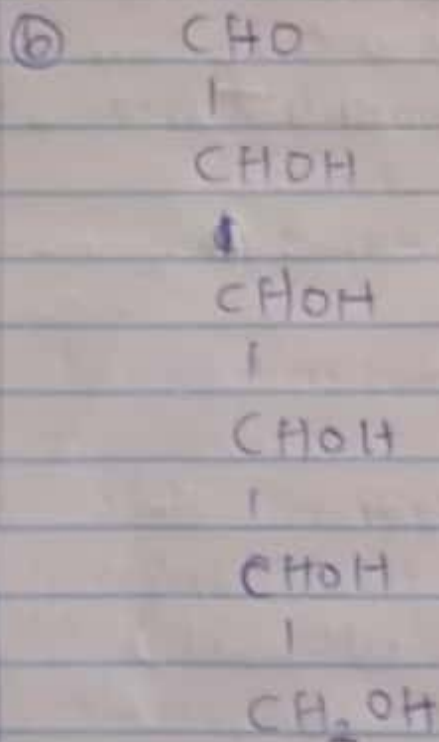 ⓑ CHO
|
CHOH
|
CHOH
|
CHOH
|
CHOH
|
CH₂OH